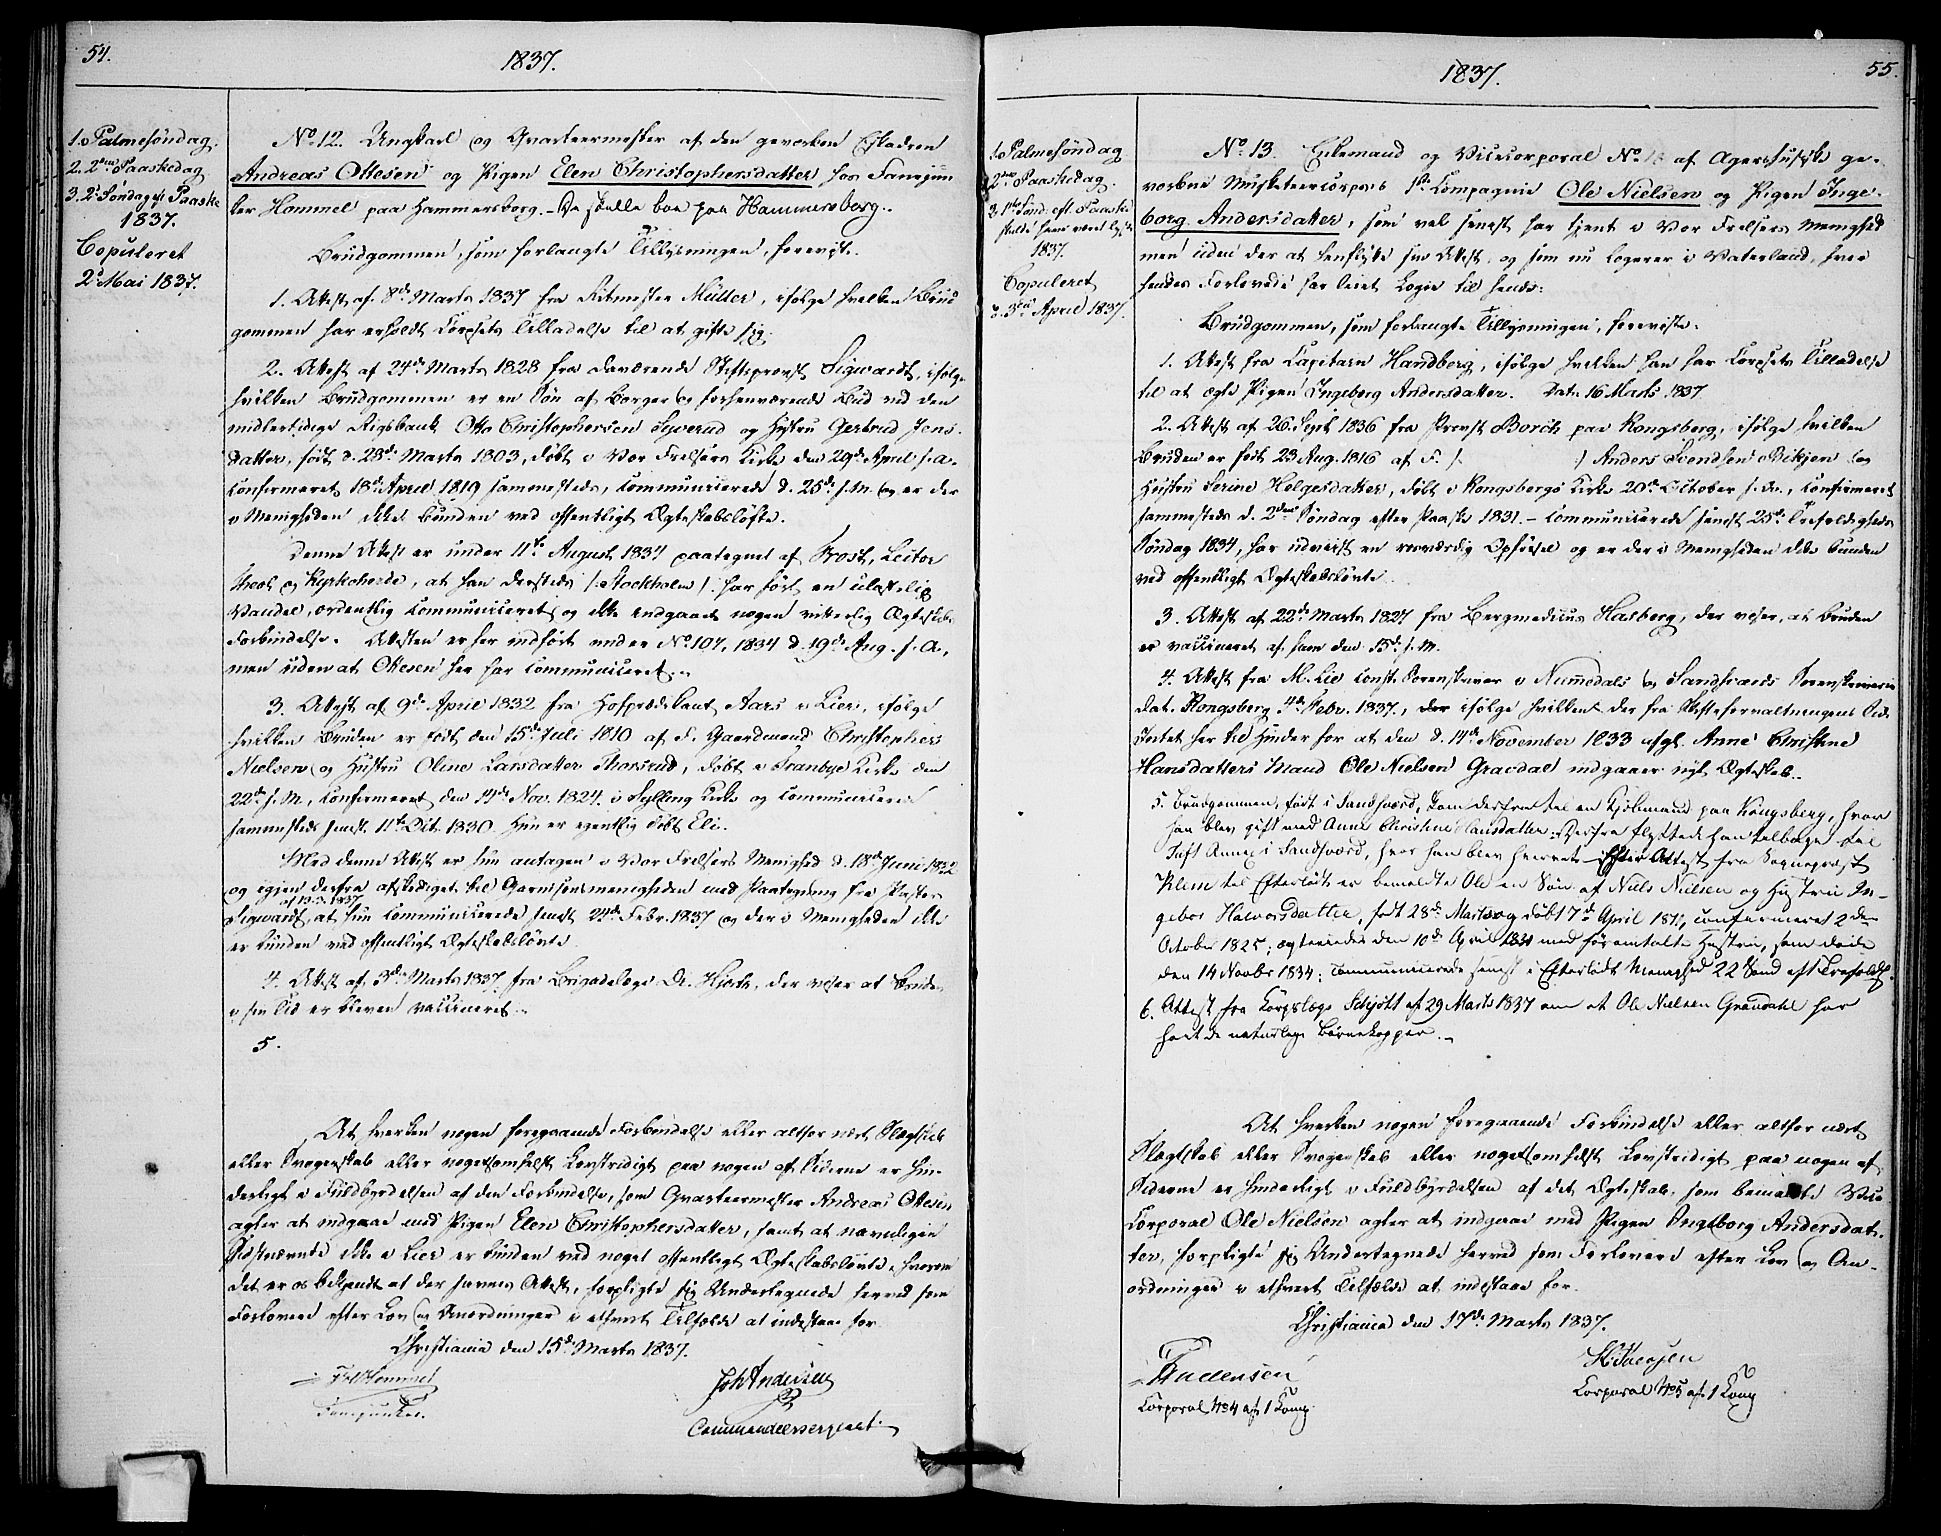 54.
1837.
1. Palmesøndag.
2. 2den Paaskedag
3. 2d Søndag ef. Paaske
1837.
Copuleret
2d Mai 1837.
No 12. Ungkarl og Qvarteermester af den gevorbne Eskadron
Andreas Ottesen og Pigen Elen Christophersdatter hos Fanejun-
ker Hommel paa Hammersborg. - De skulle boe paa Hammersborg.
Brudgommen, som forlangte Tillysningen, foreviste.
1. Attest af 8de Marts 1837 fra Ritmester Müller, ifølge hvilken Brud
gommen har erholdt Corpsets Tilladelse til at gifte sig.
2. Attest af 24de Marts 1828 fra daværende Stiftsprovst Sigwardt, ifølge
hvilken Brudgommen er en Søn af Borger og forhenværende Bud ved den
midlertidige Rigsbank Otto Christophersen Syverud og Hustru Gertrud Jens-
datter, født d. 23de Marts 1803, døbt i Vor Frelsers Kirke den 29de April s. a.
Confirmeret 18de April 1819 sammesteds, Communicerede d. 25de s. M. og er der
i Menigheden ikke bunden ved offentligt Ægteskabsløfte.
Denne Attest er under 11te August 1834 paategnet af Rost, Lector
Theol. og Kyrkoherde, at han dersteds /: Stockholm :/ har ført en ulastelig
Vandel, ordentlig Communiceret og ikke indgaaet nogen vitterlig Ægteskabs
Forbindelse. Attesten er her indført under No 107, 1834 d. 19de Aug. s. A.,
men uden at Ottesen her har Communiceret.
3. Attest af 9de April 1832 fra Hofprædikant Aars i Lier, ifølge
hvilken Bruden er født den 15de Juli 1810 af F. Gaardmand Christopher
Nielsen og Hustru Oline Larsdatter Thorsrud, døbt i Tranbye Kirke den
22de s. M., Confirmeret den 14de Nov. 1824. i Sylling Kirke og Communicerede
sammesteds senest 11te Dct. 1830. Hun er egentlig døbt Eli.
Med denne Attest er hun antagen i Vor Frelsers Menighed d. 18de Juni 1832
og igjen derfra afskediget til Garnisonsmenigheden med Paategning fra Pastor
af 13.3.1837
Sigwardt, at hun Communicerede senest 24de Febr. 1837 og der i Menigheden ikke
er bunden ved offentligt Ægteskabsløfte.
4. Attest af 3de Marts 1837 fra Brigadelæge Dr. Hjorth, der viser at Bruden
i sin Tid er bleven vaccineret.
5.
At hverken nogen foregaaende Forbindelse eller altfor nært Slægtskab
eller Svogerskab eller nogetsomhelst Lovstridigt paa nogen af Siderne er hin-
derligt i Fuldbyrdelsen af den Forbindelse, som Qvarteermester Andreas Ottesen
agter at indgaae med Pigen Elen Christophersdatter, samt at navnligen
Sidstnævnte ikke i Lier er bunden ved noget offentligt Ægteskabsløfte, hvorom
det er os bekjendt at der savnes Attest, forpligte sig Undertegnede herved som
Forlovere efter Lov og Anordninger i ethvert Tilfælde at indestaae for.
Christiania den 15de Marts 1837.
Hommel
Fanejunker.
Joh Andersen
Commandeersergeant
1837.
55.
1. Palmesøndag
2den Paaskedag.
3. 1ste Sønd. eft. Paaske
skulde have været lyst
1837.
Copuleret
d. 3die April 1837.
No 13. Enkemand og Vicecorporal No af Agershusiske ge-
vorbne Musketeercorps's 1ste Compagnie Ole Nielsen og Pigen Inge-
borg Andersdatter, som vel senest har tjent i Vor Frelsers Menighed
men uden der at henflytte sin Attest, og som nu logerer i Vaterland, hvor
hendes Forlovede har leiet Logie til hende.
Brudgommen, som forlangte Tillysningen, foreviste.
1. Attest fra Capitain Handberg, ifølge hvilken han har Corpsets Tilladelse
til at ægte Pigen Ingeborg Andersdatter. Dat. 16 Marts 1837.
2. Attest af 26. Sept. 1836 fra Provst Borch paa Kongsberg, ifølge hvilken
Bruden er født 23 Aug. 1816 af F. /: :/ Anders Svendsen Bikjen og
Hustru Serine Helgesdatter, døbt i Kongsbergs Kirke 20de October s. A., Confirmeret
sammesteds d. 2den Søndag efter Paaske 1831. - Communicerede senest 25de Trefoldigheds
Søndag 1834, har udviist en roesværdig Opførsel og er der i Menigheden ikke bunden
ved offentligt Ægteskabsløfte.
3. Attest af 22de Marts 1827 fra Bergmedicus Hasberg, der viser, at Bruden
er vaccineret af ham den 15de s. M.
4. Attest fra M. Lie Const. Sorenskriver i Numedals og Sandsværds Sorenskriverie
dat. Kongsberg 4de Febr. 1837., der ifølge hvilken der fra Skifteforvaltningens Side
Intet her til Hinder for at den d. 14de November 1833 afg. Anne Christine
Hansdatters Mand Ole Nielsen Gravdal indgaaer nyt Ægteskab.
5. Brudgommen, født i Sandsværd, kom derfra til en Kjøbmand paa Kongsberg, hvor
han blev gift med Anne Christine Hansdatter. Derfra flyttede han tilbage til
Tuft Annex i Sandsværd, hvor han blev hvervet. Efter Attest fra Sognepræst
Klem til Efterlødt er bemeldte Ole en Søn af Niels Nielsen og Hustru In-
gebor Halvorsdatter, født 28de Marts og døbt 7de April 181, confirmeret 2den
October 1825; ægteviedes den 10de April 1831 med føromtalte Hustru, som døde
den 14 Novbr 1834; Communicerede senest i Efterlødt Menighed 22 Sønd. eft. Trefoldgh.
6. Attest fra Corpslæge Schjøtt af 29 Marts 1837 om at Ole Nielsen Gravdahl har
havt de naturlige Børnekopper.
At hverken nogen foregaaende Forbindelse eller altfor nært
Slægtskab eller Svogerskab eller nogetsomhelst Lovstridigt paa nogen af
Siderne er hinderligt i Fuldbyrdelsen af det Ægteskab, som bemeldte Vice
Corporal Ole Nielsen agter at indgaae med Pigen Ingeborg Andersdat-
ter, forpligte sig Undertegnede herved som Forlovere efter Lov og An-
ordninger i ethvert Tilfælde at indestaae for.
Christiania den 17de Marts 1837.
Corporal No 4 af 1 Komp.
Corporal No 5 af 1 Komp